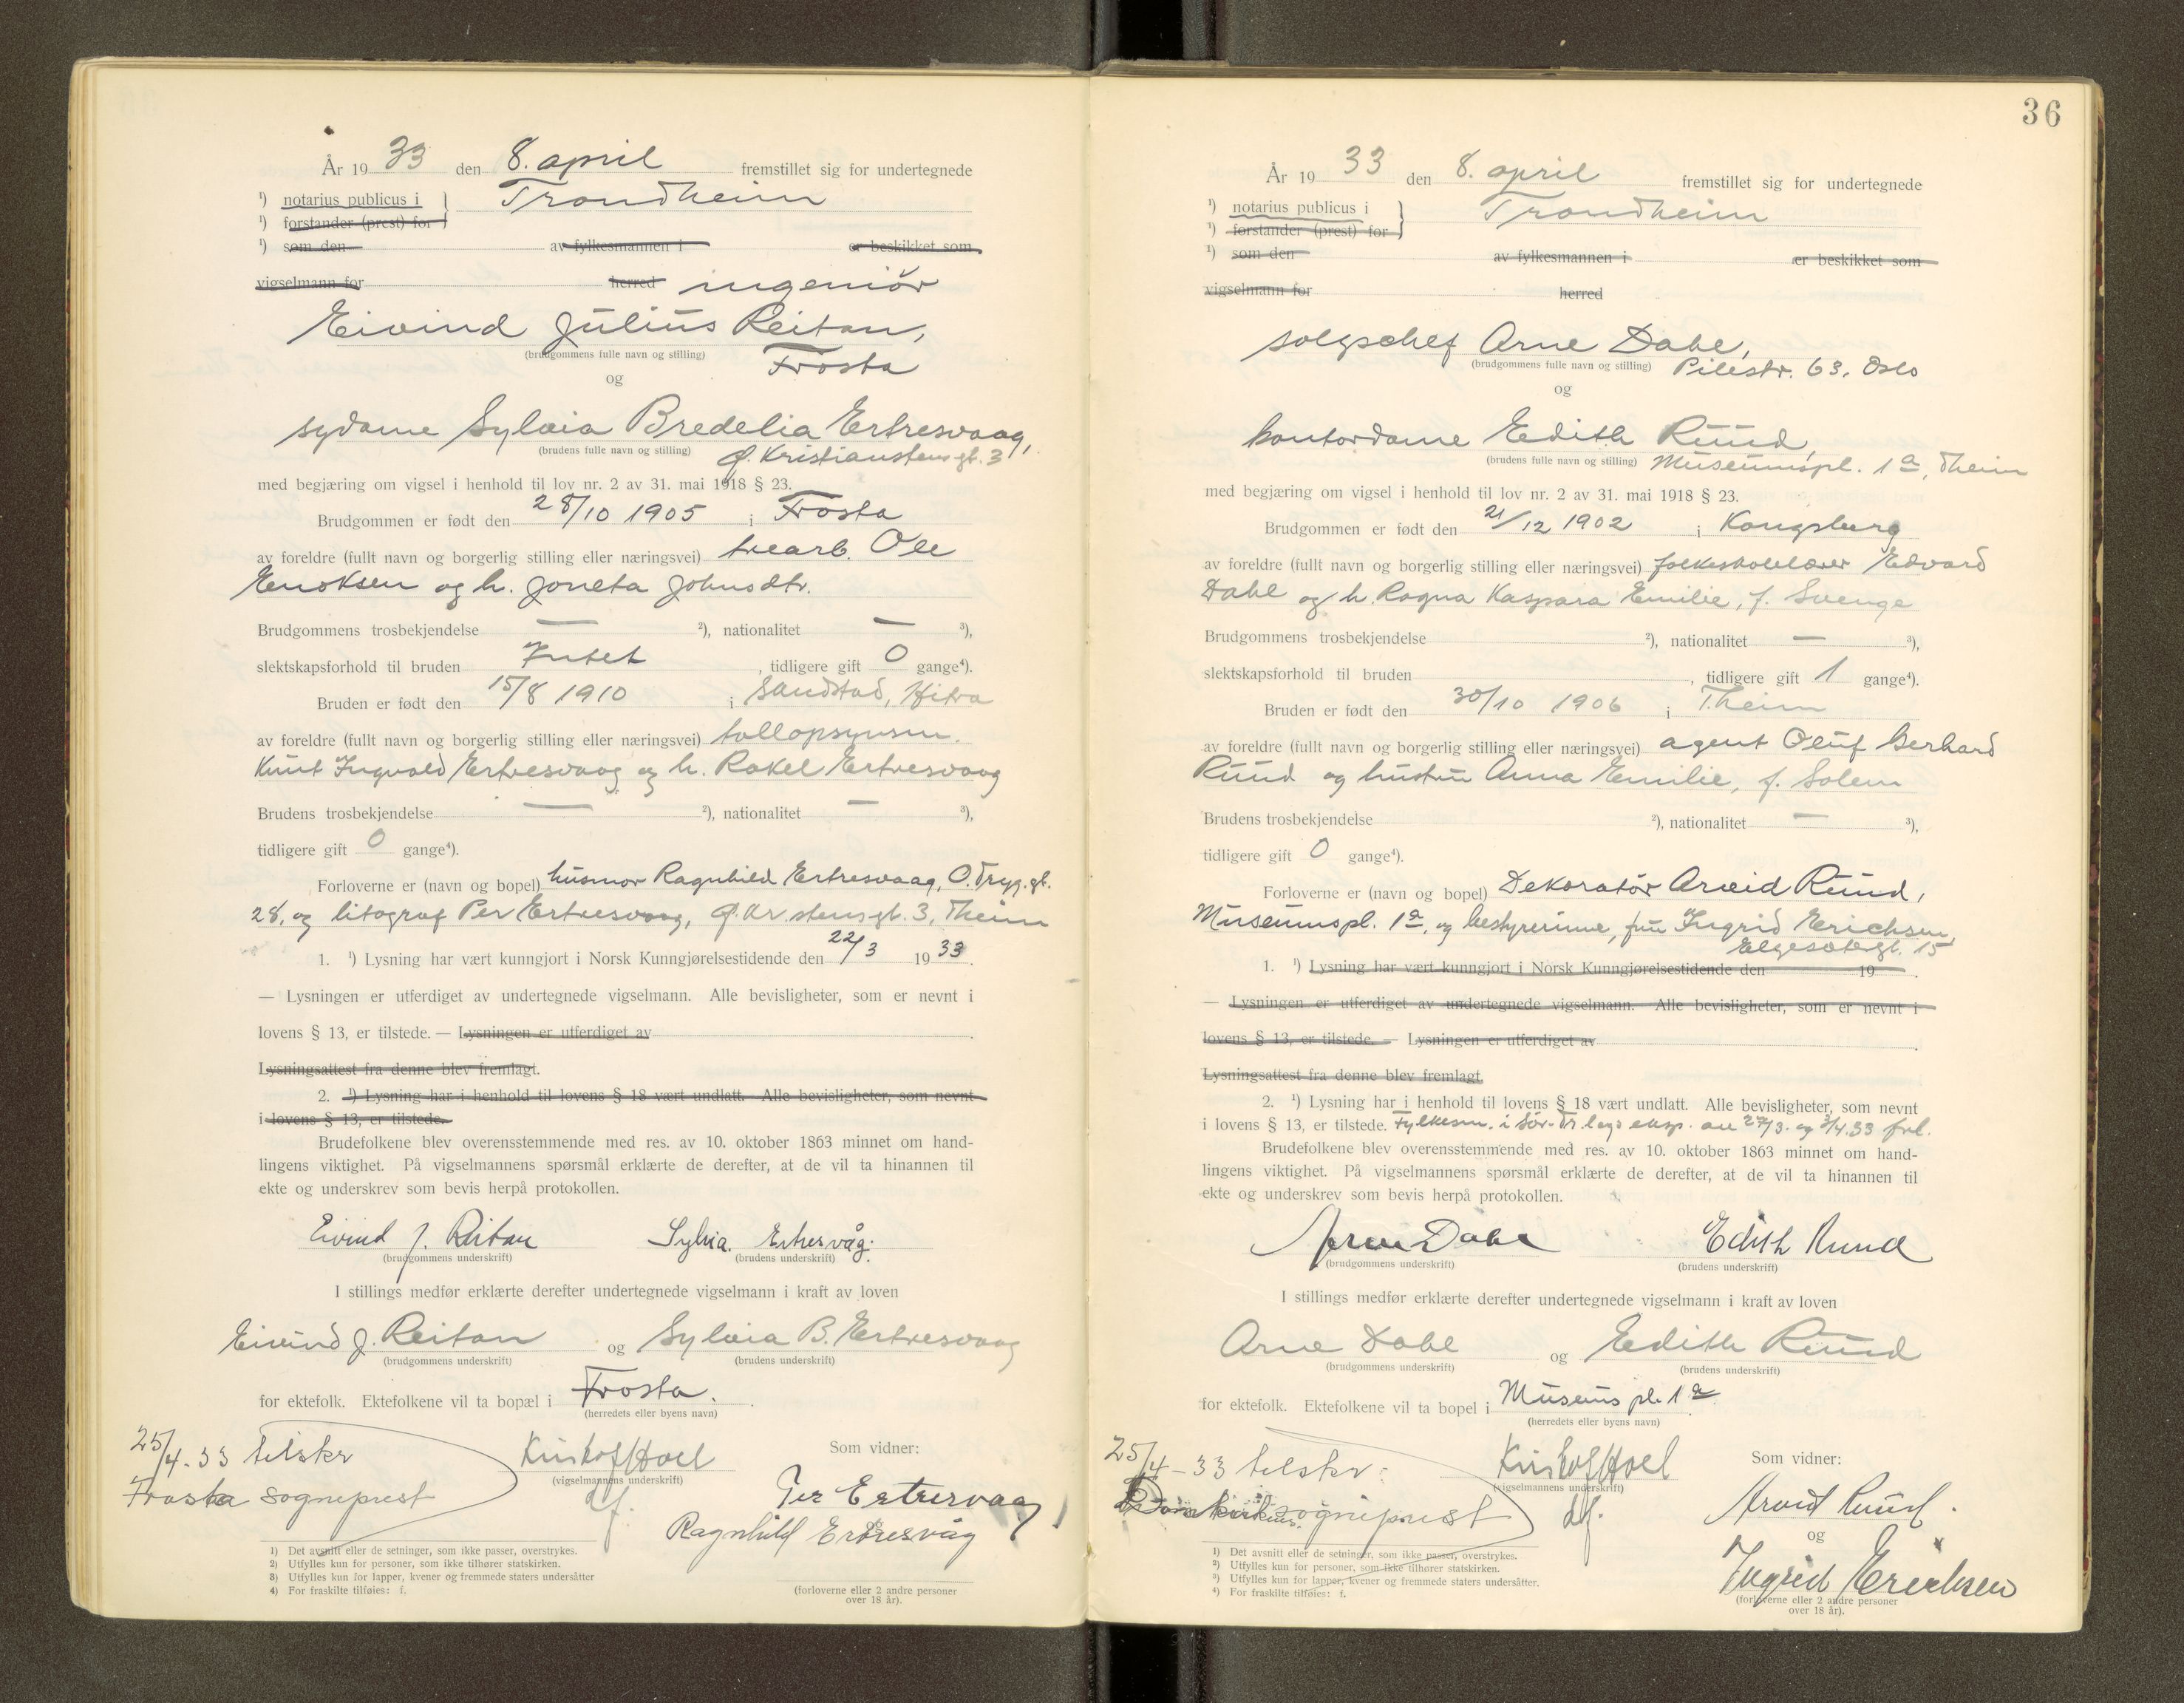 År 1933 den 8. april fremstillet sig for undertegnede
¹) notarius publicus i } Trondheim
¹) forstander (prest) for
¹) som den av fylkesmannen i er beskikket som
vigselmann for herred ingeniör
Eivind Julius Reitan,
(brudgommens fulle navn og stilling) Frosta
og
sydame Sylvia Bredelia Ertresvaag,
(brudens fulle navn og stilling) Ø. Kristianstensgt. 3
med begjæring om vigsel i henhold til lov nr. 2 av 31. mai 1918 § 23.
Brudgommen er født den 28/10 1905 i Frosta
av foreldre (fullt navn og borgerlig stilling eller næringsvei) trearb. Ole
Enoksen og h. Joneta Johnsdtr.
Brudgommens trosbekjendelse — ²), nationalitet — ³),
slektskapsforhold til bruden Intet, tidligere gift 0 gange⁴).
Bruden er født den 15/8 1910 i Sandstad, Hitra
av foreldre (fullt navn og borgerlig stilling eller næringsvei) tollopsynsm.
Knut Ingvald Ertresvaag og h. Rakel Ertresvaag
Brudens trosbekjendelse — ²), nationalitet — ³),
tidligere gift 0 gange⁴).
Forloverne er (navn og bopel) husmor Ragnhild Ertresvaag, O. Tryg. gt.
28, og litograf Per Ertresvaag, Ø. Kr.stensgt. 3, Theim
1. ¹) Lysning har vært kunngjort i Norsk Kunngjørelsestidende den 22/3 1933.
— Lysningen er utferdiget av undertegnede vigselmann. Alle bevisligheter, som er nevnt i
lovens § 13, er tilstede. — Lysningen er utferdiget av
Lysningsattest fra denne blev fremlagt.
2. ¹) Lysning har i henhold til lovens § 18 vært undlatt. Alle bevisligheter, som nevnt
i lovens § 13, er tilstede.
Brudefolkene blev overensstemmende med res. av 10. oktober 1863 minnet om hand-
lingens viktighet. På vigselmannens spørsmål erklærte de derefter, at de vil ta hinannen til
ekte og underskrev som bevis herpå protokollen.
Eivind J. Reitan Sylvia Ertresvåg.
(brudgommens underskrift) (brudens underskrift)
I stillings medfør erklærte derefter undertegnede vigselmann i kraft av loven
Eivind J. Reitan og Sylvia B. Ertresvaag
(brudgommens underskrift) (brudens underskrift)
for ektefolk. Ektefolkene vil ta bopæl i Frosta.
(herredets eller byens navn)
25/4-33 tilskr Kristof Hoel Som vidner:
(vigselmannens underskrift)
Frosta sogneprest df. Per Ertresvaag
og
Ragnhild Ertresvåg
1) Det avsnitt eller de setninger, som ikke passer, overstrykes.
2) Utfylles kun for personer, som ikke tilhører statskirken.
3) Utfylles kun for lapper, kvener og fremmede staters undersåtter
4) For fraskilte tilføies: f.
(forloverne eller 2 andre personer
over 18 år).
36
År 1933 den 8. april fremstillet sig for undertegnede
¹) notarius publicus i } Trondheim
¹) forstander (prest) for
¹) som den av fylkesmannen i er beskikket som
vigselmann for herred
salgschef Arne Dahl,
(brudgommens fulle navn og stilling) Pilestr. 63, Oslo
og
kontordame Edith Ruud,
(brudens fulle navn og stilling) Museumspl. 1a, Theim
med begjæring om vigsel i henhold til lov nr. 2 av 31. mai 1918 § 23.
Brudgommen er født den 21/12 1902 i Kongsberg
av foreldre (fullt navn og borgerlig stilling eller næringsvei) folkeskolelærer Edvard
Dahl og h. Ragna Kaspara Emilie, f. Svenge
Brudgommens trosbekjendelse ²), nationalitet — ³),
slektskapsforhold til bruden , tidligere gift 1 gange⁴).
Bruden er født den 30/10 1906 i Theim
av foreldre (fullt navn og borgerlig stilling eller næringsvei) agent Oluf Gerhard
Ruud og hustru Anna Emilie, f. Solem
Brudens trosbekjendelse ²), nationalitet — ³),
tidligere gift 0 gange⁴).
Forloverne er (navn og bopel) Dekoratör Arvid Ruud,
Museumspl. 1a, og bestyrerinne, fru Ingrid Erichsen,
Elgesetergt. 15
1. ¹) Lysning har vært kunngjort i Norsk Kunngjørelsestidende den 19 .
— Lysningen er utferdiget av undertegnede vigselmann. Alle bevisligheter, som er nevnt i
lovens § 13, er tilstede. — Lysningen er utferdiget av
Lysningsattest fra denne blev fremlagt.
2. ¹) Lysning har i henhold til lovens § 18 vært undlatt. Alle bevisligheter, som nevnt
i lovens § 13, er tilstede. Fylkesm. i Sör-Tr.lags eksp. av 27/3. og 3/4.33 frl.
Brudefolkene blev overensstemmende med res. av 10. oktober 1863 minnet om hand-
lingens viktighet. På vigselmannens spørsmål erklærte de derefter, at de vil ta hinannen til
ekte og underskrev som bevis herpå protokollen.
Arne Dahl Edith Ruud
(brudgommens underskrift) (brudens underskrift)
I stillings medfør erklærte derefter undertegnede vigselmann i kraft av loven
Arne Dahl og Edith Ruud
(brudgommens underskrift) (brudens underskrift)
for ektefolk. Ektefolkene vil ta bopel i Museumspl. 1a
(herredets eller byens navn)
25/4-33 tilskr. Kristof Hoel Som vidner:
(vigselmannens underskrift)
Domkirkens sogneprest df. Arvid Ruud.
og
Ingrid Erichsen
¹) Det avsnitt eller de setninger, som ikke passer, overstrykes.
²) Utfylles kun for personer, som ikke tilhører statskirken.
³) Utfylles kun for lapper, kvener og fremmede staters undersåtter.
⁴) For fraskilte tilføies: f.
(forloverne eller 2 andre personer
over 18 år).